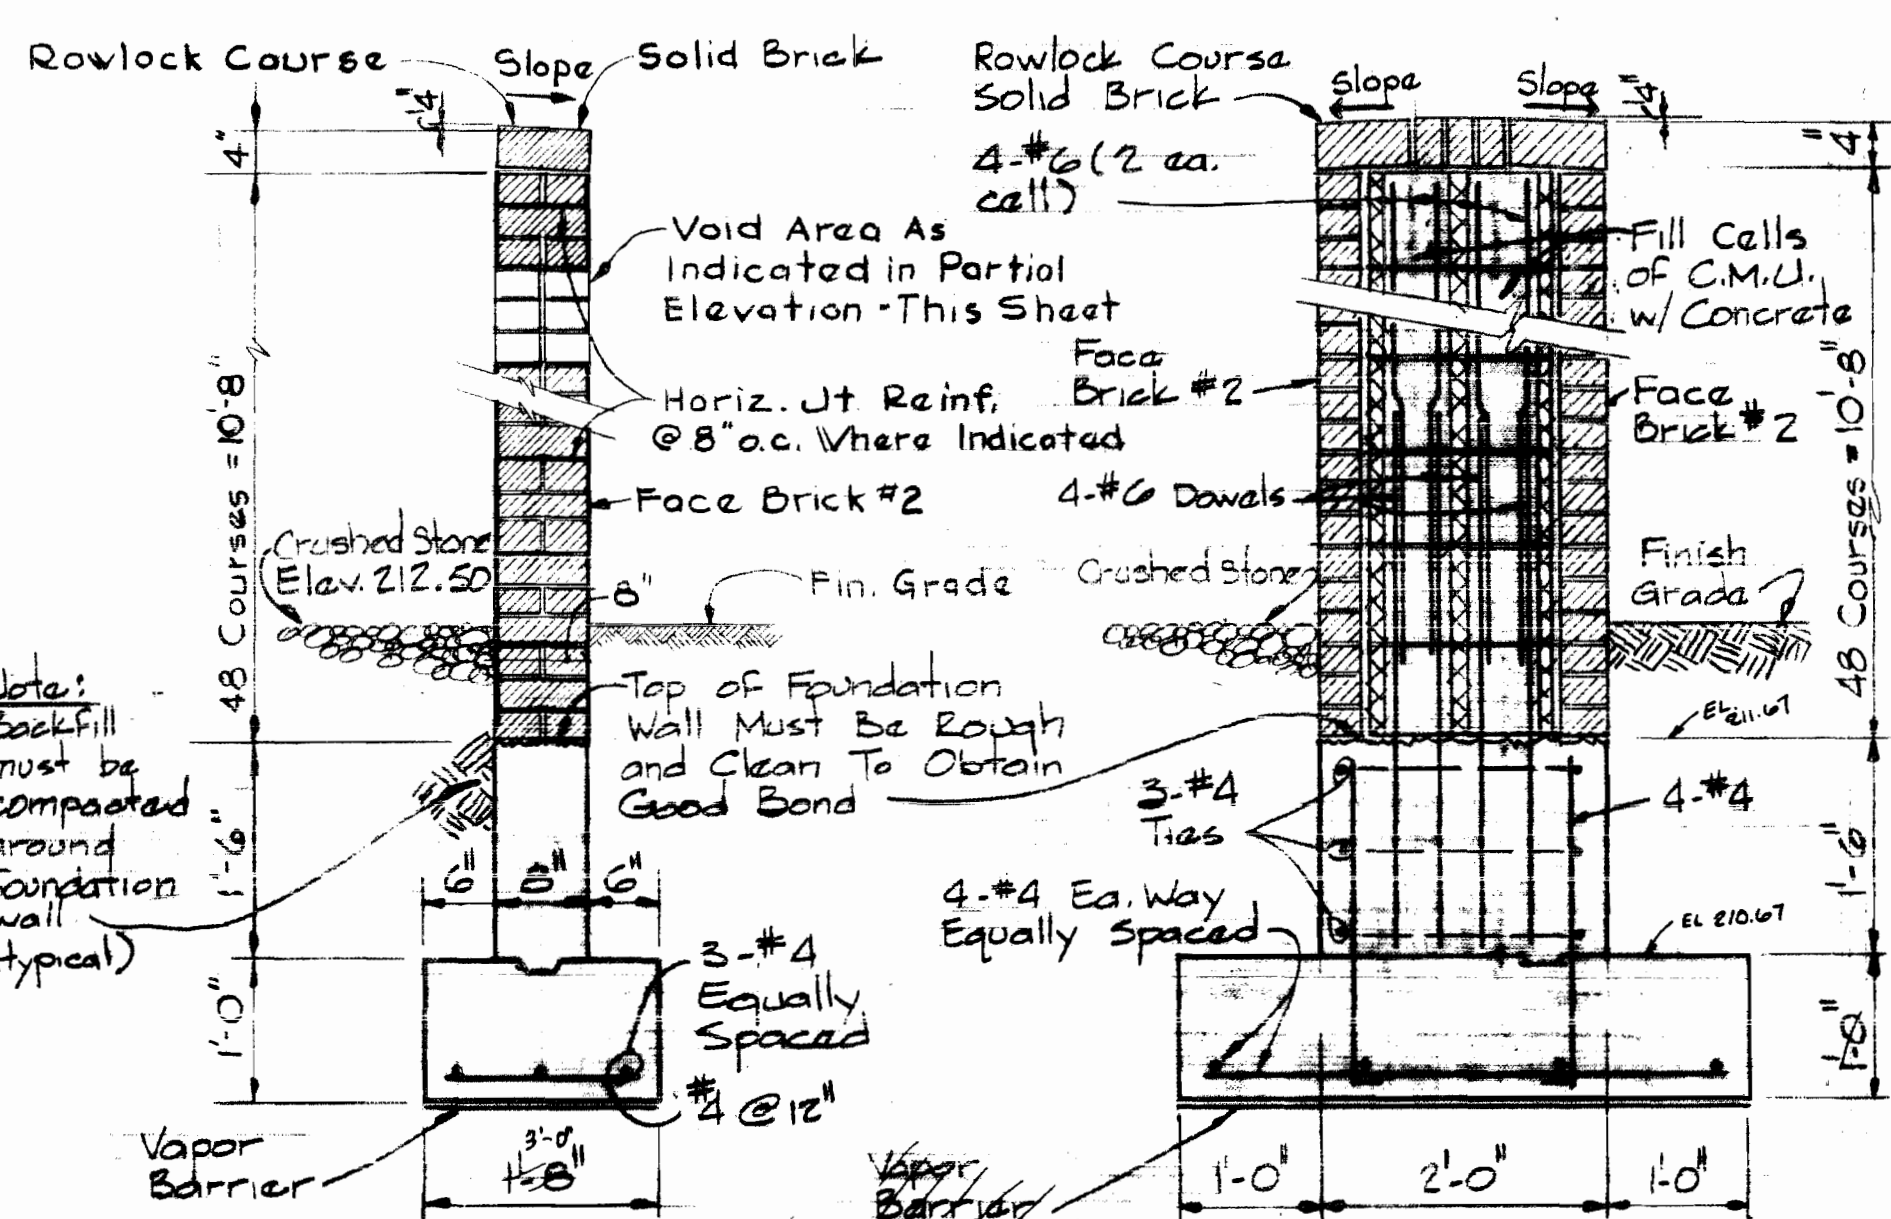 Rowlock Course
Slope
Solid Brick
1/4"
4"
Void Area As
Indicated in Partial
Elevation - This Sheet
Horiz. Jt Reinf.
@ 8" o.c. Where Indicated
Face Brick #2
48 Courses = 10'-8"
Crushed Stone
Elev. 212.50
8"
Fin. Grade
Top of Foundation
Wall Must Be Rough
and Clean To Obtain
Good Bond
Note:
Backfill
must be
compacted
around
foundation
wall
(typical)
1'-6"
6" 8" 6"
1'-0"
3-#4
Equally
Spaced
#4 @ 12"
Vapor
Barrier
3'-0"
1'-8"
Rowlock Course
Solid Brick
Slope
Slope
1/4"
4"
4-#6 (2 ea.
cell)
Fill Cells
of C.M.U.
w/ Concrete
Face
Brick #2
Face
Brick #2
4-#6 Dowels
48 Courses = 10'-8"
Crushed Stone
Finish
Grade
EL 211.67
3-#4
Ties
4-#4
4-#4 Ea. Way
Equally Spaced
1'-6"
EL 210.67
1'-0"
Vapor
Barrier
1'-0" 2'-0" 1'-0"